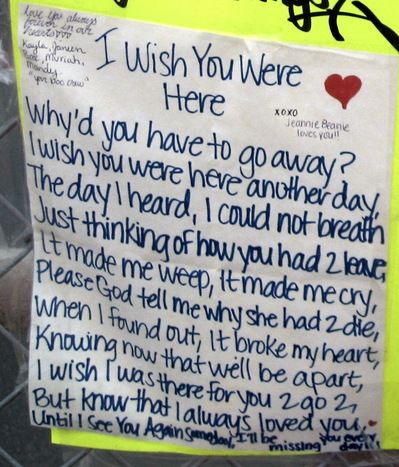 Love you always
forever in our
hearts
Kayla, Janeen
Rose, Muriah,
Mandy.
"your Boo Crew"
I Wish You Were
Here
xoxo
Jeannie Beanie
loves you!!
Why'd you have to go away?
I wish you were here another day,
The day I heard, I could not breath
Just thinking of how you had 2 leave,
It made me weep, It made me cry,
Please God tell me why she had 2 die,
When I found out, It broke my heart,
Knowing now that we'll be apart,
I wish I was there for you 2 go 2,
But know that I always loved you,
Until I See You Again someday, I'll be missing you every day!!!